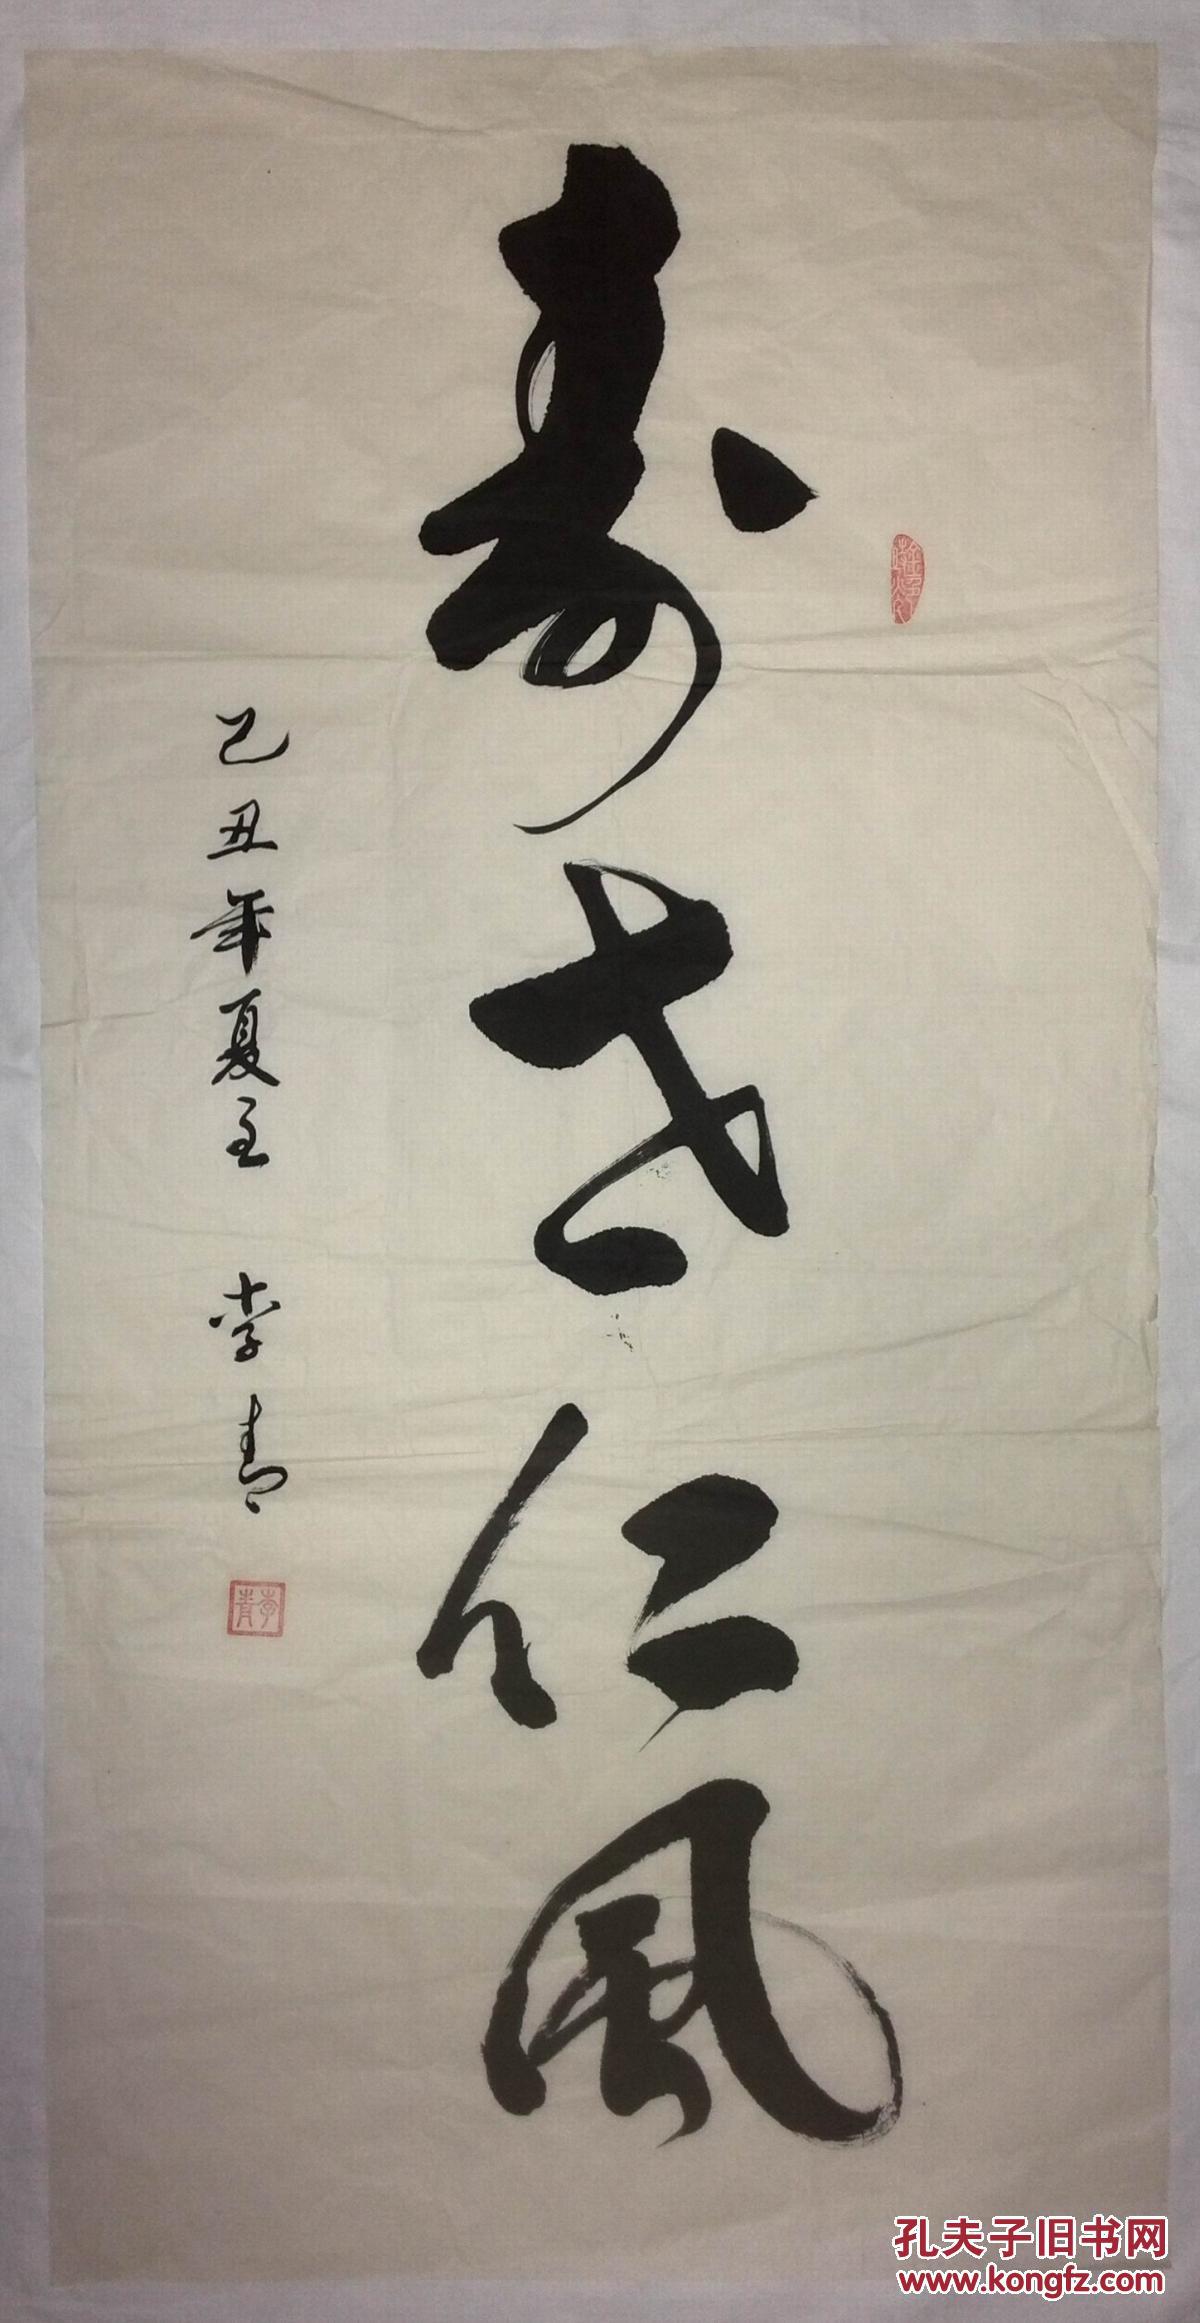 寿世仁风
己丑年夏至 李青
李青
孔夫子旧书网
www.kongfz.com